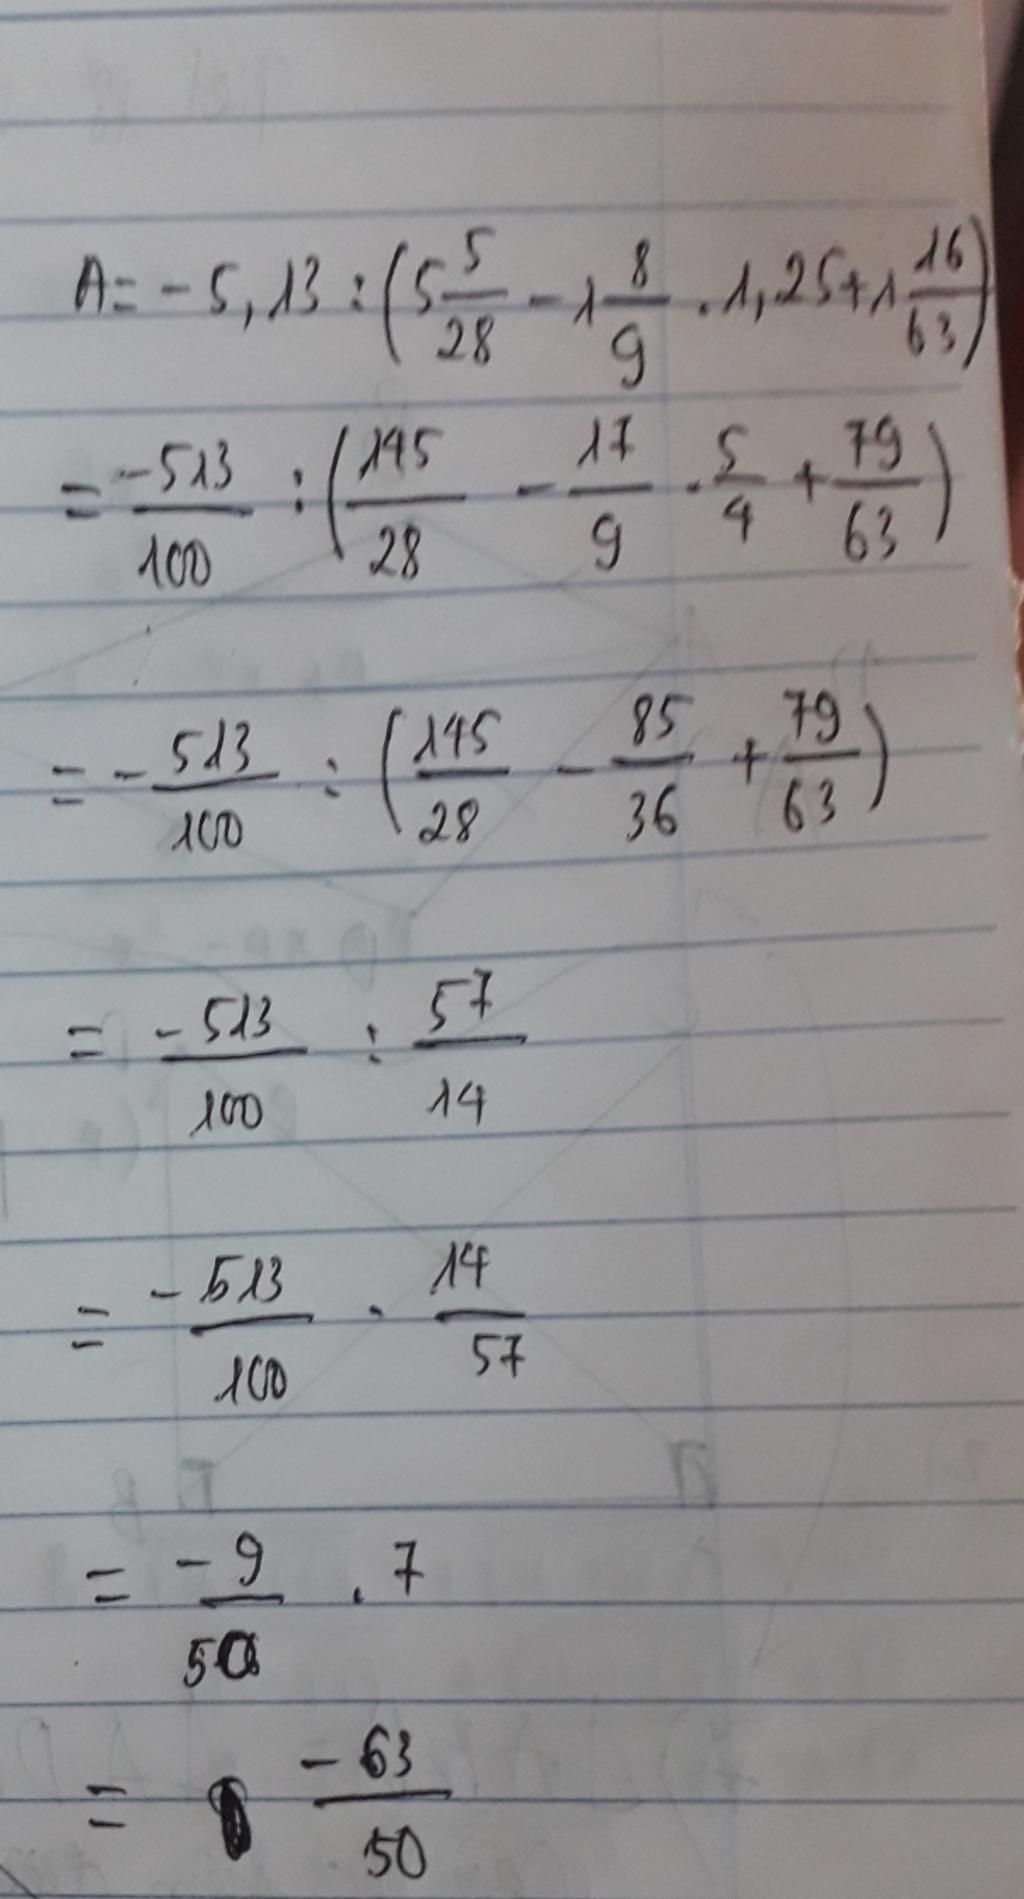 A = -5,13 : (5 5/28 - 1 8/9 . 1,25 + 1 16/63)
= -513/100 : (145/28 - 17/9 . 5/4 + 79/63)
= -513/100 : (145/28 - 85/36 + 79/63)
= -513/100 : 57/14
= -513/100 . 14/57
= -9/50 . 7
= -63/50